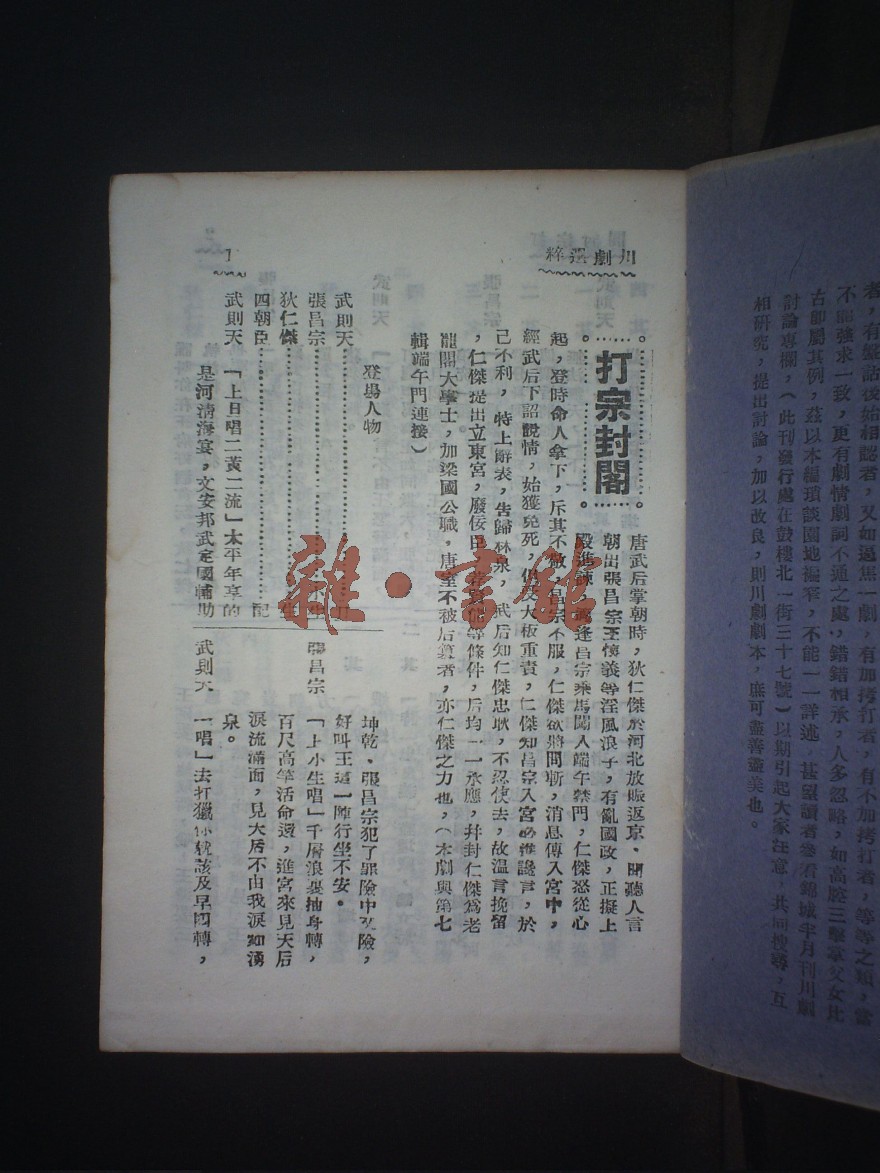 者,有盤詰後始相認者,又如逼焦一劇,有加拷打者,有不加拷打者,等等之類,當
不能強求一致,更有劇情劇詞不通之處,錯錯相承,人多忽略,如高腔三擊掌父女比
古卽屬其例,茲以本編瑣談園地褊窄,不能一一詳述,甚望讀者參看錦城半月刊川劇
討論專欄,(此刊發行處在鼓樓北一街三十七號)以期引起大家注意,共同搜尋,互
相研究,提出討論,加以改良,則川劇劇本,庶可盡善盡美也。
川劇選粹
打宗封閣
唐武后掌朝時,狄仁傑於河北放賑返京,聞聽人言
朝出張昌宗王懷義等淫風浪子,有亂國政,正擬上
殿進諫,適逢昌宗乘馬闖入端午禁門,仁傑怒從心
起,登時命人拿下,斥其不敬,昌宗不服,仁傑欲將問斬,消息傳入宮中,
經武后下詔說情,始獲免死,仍受大板重責,仁傑知昌宗入宮必進讒言,於
己不利,特上辭表,告歸林泉,武后知仁傑忠耿,不忍使去,故溫言挽留
,仁傑提出立東宮,廢佞臣,等條件,后均一一承應,幷封仁傑爲老
龍閣大學士,加梁國公職,唐室不被后篡者,亦仁傑之力也,(本劇與第七
輯端午門連接)
登場人物
武則天
張昌宗
狄仁傑
四朝臣
武則天 「上旦唱二黃二流」太平年享的
是河清海宴,文安邦武定國輔助
坤乾。張昌宗犯了罪險中又險,
好叫王這一陣行坐不安。
張昌宗 「上小生唱」千層浪裏抽身轉,
百尺高竿活命還,進宮來見天后
淚流滿面,見天后不由我淚如湧
泉。
武則天 「唱」去打獵你就該及早回轉,
雜·書館